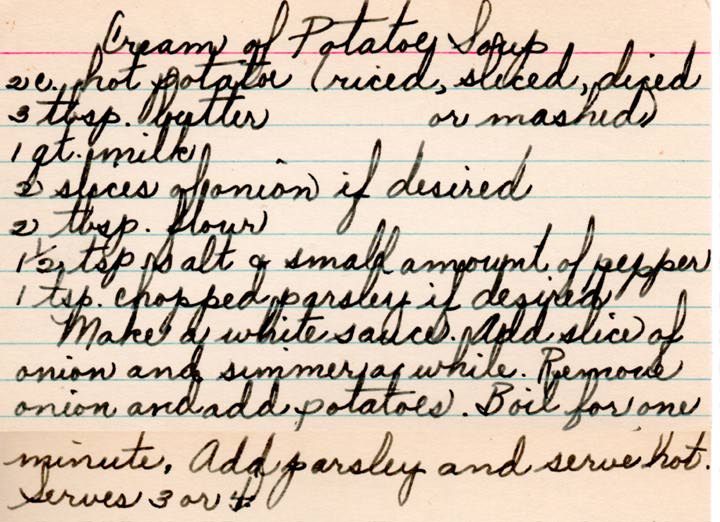 Cream of Potatoe Soup
2 c. hot potatoe (riced, sliced, diced
3 tbsp. butter or mashed)
1 qt. milk
2 slices of onion if desired
2 tbsp. flour
1 1/2 tsp salt & small amount of pepper
1 tsp. chopped parsley if desired
Make a white sauce. Add slice of
onion and simmer a while. Remove
onion and add potatoes. Boil for one
minute. Add parsley and serve hot.
Serves 3 or 4